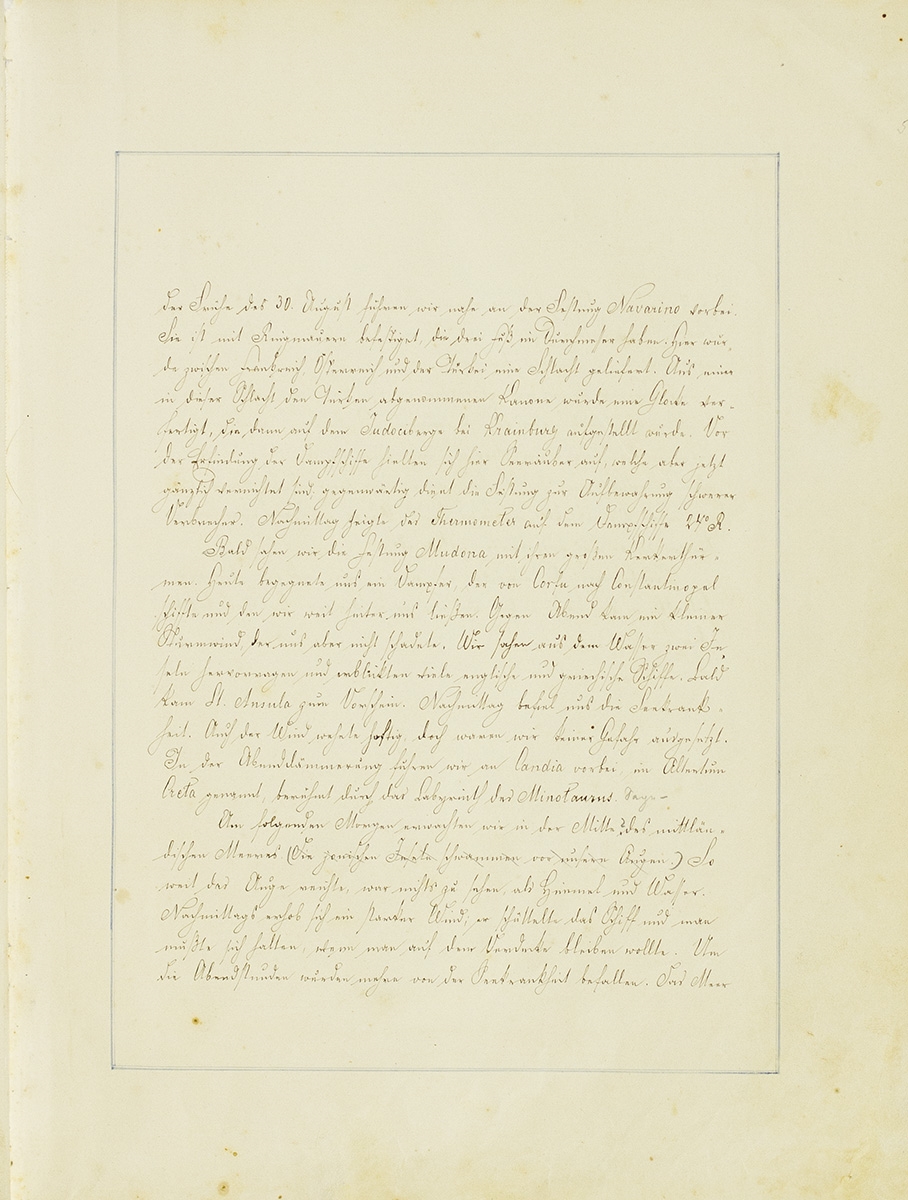 der Frühe des 30. August fuhren wir nahe an der Festung Navarino vorbei.
Sie ist mit Ringmauern befestiget, die drei Fuß im Durchmeßer haben. Hier wur¬
de zwischen Frankreich, Österreich und der Türkei eine Schlacht geliefert. Aus einer
in dieser Schlacht den Türken abgenommenen Kanone wurde eine Glocke ver¬
fertigt, die dann auf dem Judociberge bei Krainburg aufgestellt wurde. Vor
der Erfindung der Dampfschiffe hielten sich hier Seeräuber auf, welche aber jetzt
gänzlich vernichtet sind. gegenwärtig dient die Festung zur Aufbewahrung schwerer
Verbrecher. Nachmittag zeigte das Thermometer auf dem Dampfschiffe R.
Bald sahen wir die Festung Mudona mit ihren großen Kerkerthür¬
men. Heute begegnete uns ein Dampfer, der von Corfu nach Constantinopel
schiffte und den wir weit hinter uns ließen. Gegen Abend kam ein kleiner
Sturmwind, der uns aber nicht schadete. Wir sahen aus dem Waßer zwei In¬
seln hervorragen und erblickten viele englische und griechische Schiffe. Bald
kam St. Ansula zum Vorschein. Nachmittag befiel uns die Seekrank¬
heit. Auch der Wind wehete heftig, doch waren wir keiner Gefahr ausgesetzt.
In der Abenddämmerung fuhren wir an Candia vorbei, im Altertum
Creta genannt, berühmt durch das Labyrinth des Minotaurus. Sage-
Am folgenden Morgen erwachten wir in der Mitte? des mittlän¬
dischen Meeres (Die zwischen Inseln schwammen vor unsern Augen.) So
weit das Auge reichte, war nichts zu sehen, als Himmel und Waßer.
Nachmittags erhob sich ein starker Wind, er schüttelte das Schiff und man
mußte sich halten, wenn man auf dem Verdecke bleiben wollte. Um
die Abendstunden wurden mehre von der Seekrankheit befallen. Das Meer